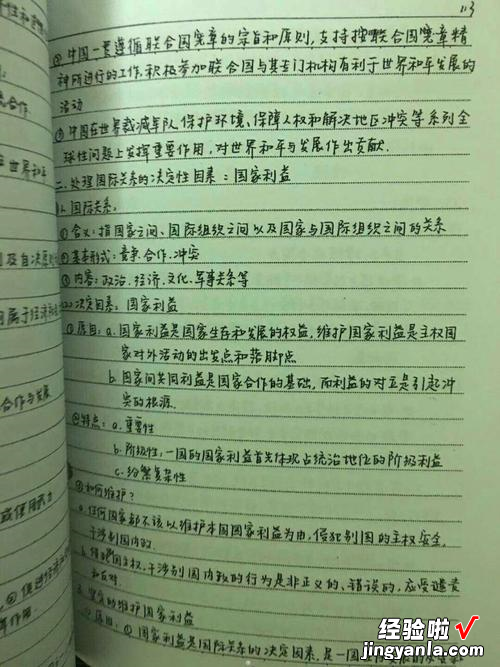 113
② 中国一贯遵循联合国宪章的宗旨和原则，支持按联合国宪章精
神所进行的工作，积极参加联合国与其专门机构有利于世界和平发展的
活动
③ 中国在世界裁减军队、保护环境、保障人权和解决地区冲突等系列全
球性问题上发挥重要作用，对世界和平与发展作出贡献.
二、处理国际关系的决定性因素：国家利益
1. 国际关系.
① 含义：指国家之间、国际组织之间以及国家与国际组织之间的关系
② 基本形式：竞争、合作、冲突
③ 内容：政治、经济、文化、军事关系等
2. 决定因素：国家利益
① 原因：a. 国家利益是国家生存和发展的权益，维护国家利益是主权国
家对外活动的出发点和落脚点
b. 国家间共同利益是国家合作的基础，而利益的对立是引起冲
突的根源.
② 特点：a. 重要性
b. 阶级性：一国的国家利益首先体现占统治地位的阶级利益
c. 纷繁复杂性
③ 如何维护？
a. 任何国家都不该以维护本国国家利益为由，侵犯别国的主权安全，
干涉别国内政.
b. 侵犯国主权，干涉别国内政的行为是非正义的、错误的，应受谴责
和反对.
3. 坚定的维护国家利益
原因：① 国家利益是国际关系的决定因素，是一国
合作
世界和平
及自决原则
属于经济
合作与发展
或使用武力
② 促进经济
作用.
经验啦√
jingyanla.com